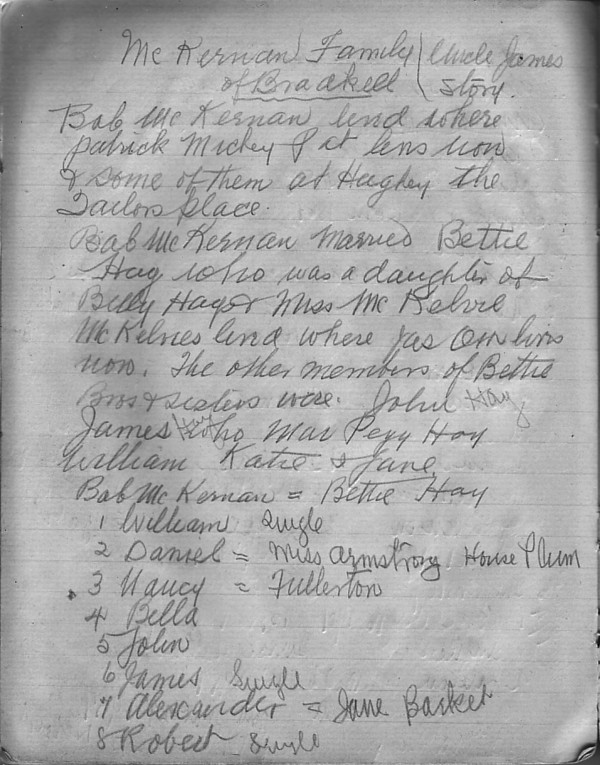 Mc Kernan Family (Uncle James
of Bradkell ( Story.
Bob Mc Kernan livd where
Patrick Mickey P at livs now
& some of them at Hughey the
Tailors place.
Bab Mc Kernan Married Bettie
Hay who was a daughter of
Billy Hay & Miss Mc Kelvie
McKelvies livd where Jas Orr livs
now. The other members of Bettie
Bros & sisters were. John Hay
James Hay who Mar Pegy Hay
William Katie & Jane
Bab Mc Kernan = Bettie Hay
1 William Single
2 Daniel = Miss Armstrong House
3 Nancy = Fullerton
4 Bella
5 John
6 James Single
7 Alexander = Jane Barket
8 Robert Single